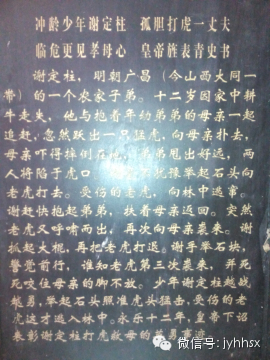 冲龄少年谢定柱 孤胆打虎一丈夫
临危更见孝母心 皇帝旌表青史书
谢定柱，明朝广昌（今山西大同一
带）的一个农家子弟。十二岁因家中耕
牛走失，他与抱着年幼弟弟的母亲一起
追赶，忽然跃出一只猛虎，向母亲扑去，
母亲吓得摔倒在地，弟弟甩出好远，两
人将陷于虎口，举起石头向
老虎打去。受伤的老虎，向林中逃窜。
谢赶快抱起弟弟，扶着母亲返回。突然
老虎又呼啸而出，再次向母亲袭来。谢
抓起大棍，再把老虎打退。谢手举石块，
警觉前行，谁知老虎第三次袭来，并死
死咬住母亲的脚不放。少年谢定柱越战
越勇，举起石头照准虎头猛击，受伤的老
虎这才逃入林中。永乐十二年，皇帝下诏
表彰谢定柱打虎救母的英勇事迹
微信号：jyhhsx